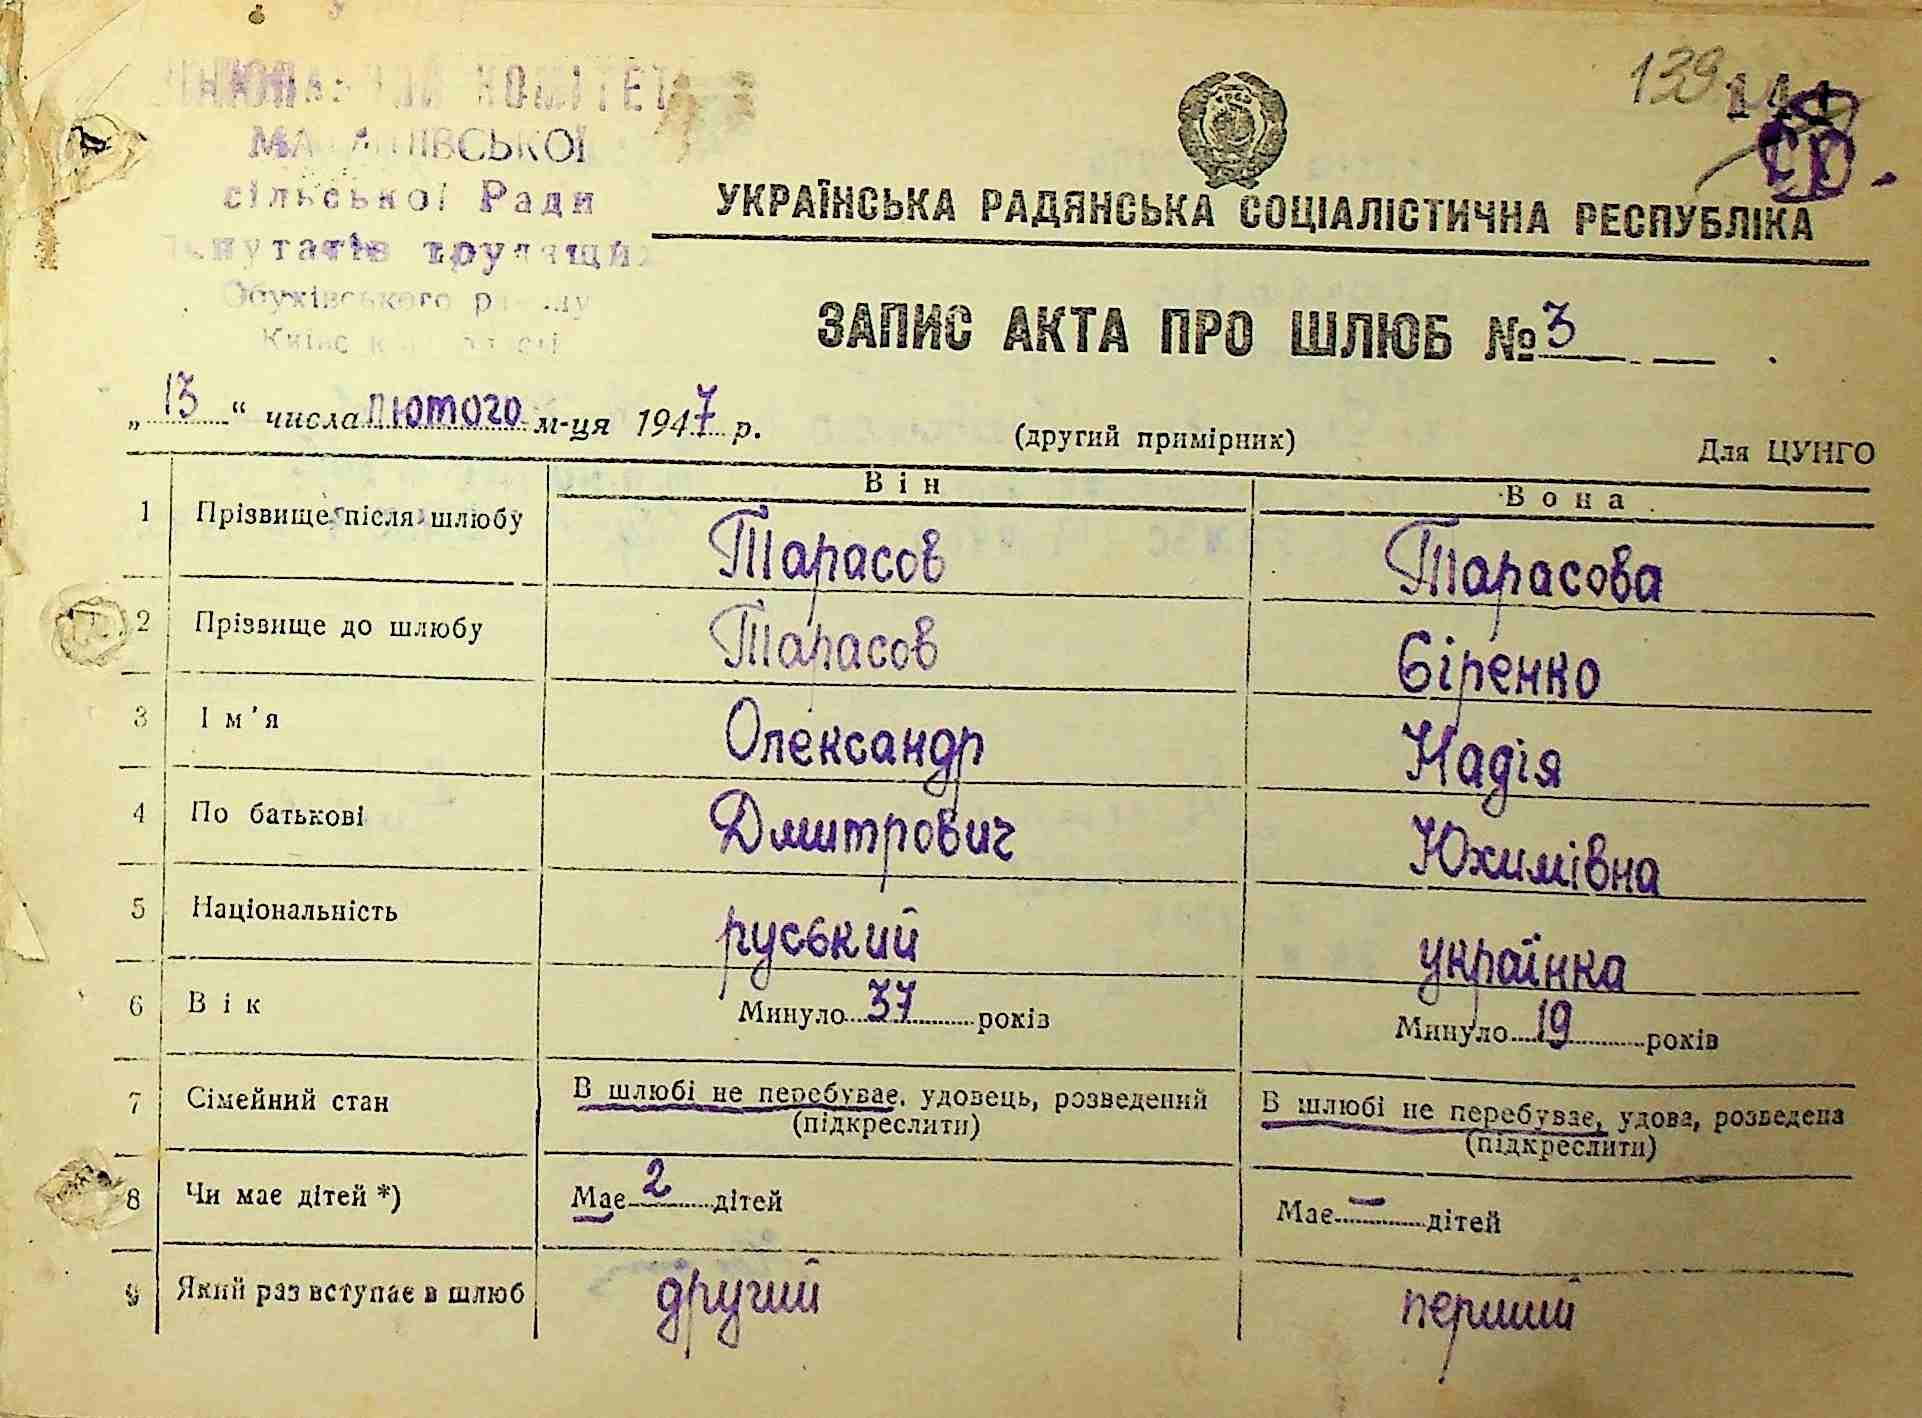 КОМІТЕТ
сільської Ради
Депутатів трудящих
Обухівського району
139
УКРАЇНСЬКА РАДЯНСЬКА СОЦІАЛІСТИЧНА РЕСПУБЛІКА
ЗАПИС АКТА ПРО ШЛЮБ № 3
„13“ числа лютого м-ця 1947 р.
(другий примірник)
Для ЦУНГО
Він Вона
1 Прізвище після шлюбу Тарасов Тарасова
2 Прізвище до шлюбу Тарасов Сіренко
3 Ім'я Олександр Надія
4 По батькові Дмитрович Юхимівна
5 Національність руський українка
6 Вік Минуло 37 років Минуло 19 років
7 Сімейний стан В шлюбі не перебуває, удовець, розведений В шлюбі не перебуває, удова, розведена
(підкреслити) (підкреслити)
8 Чи має дітей *) Має 2 дітей Має — дітей
9 Який раз вступає в шлюб другий перший